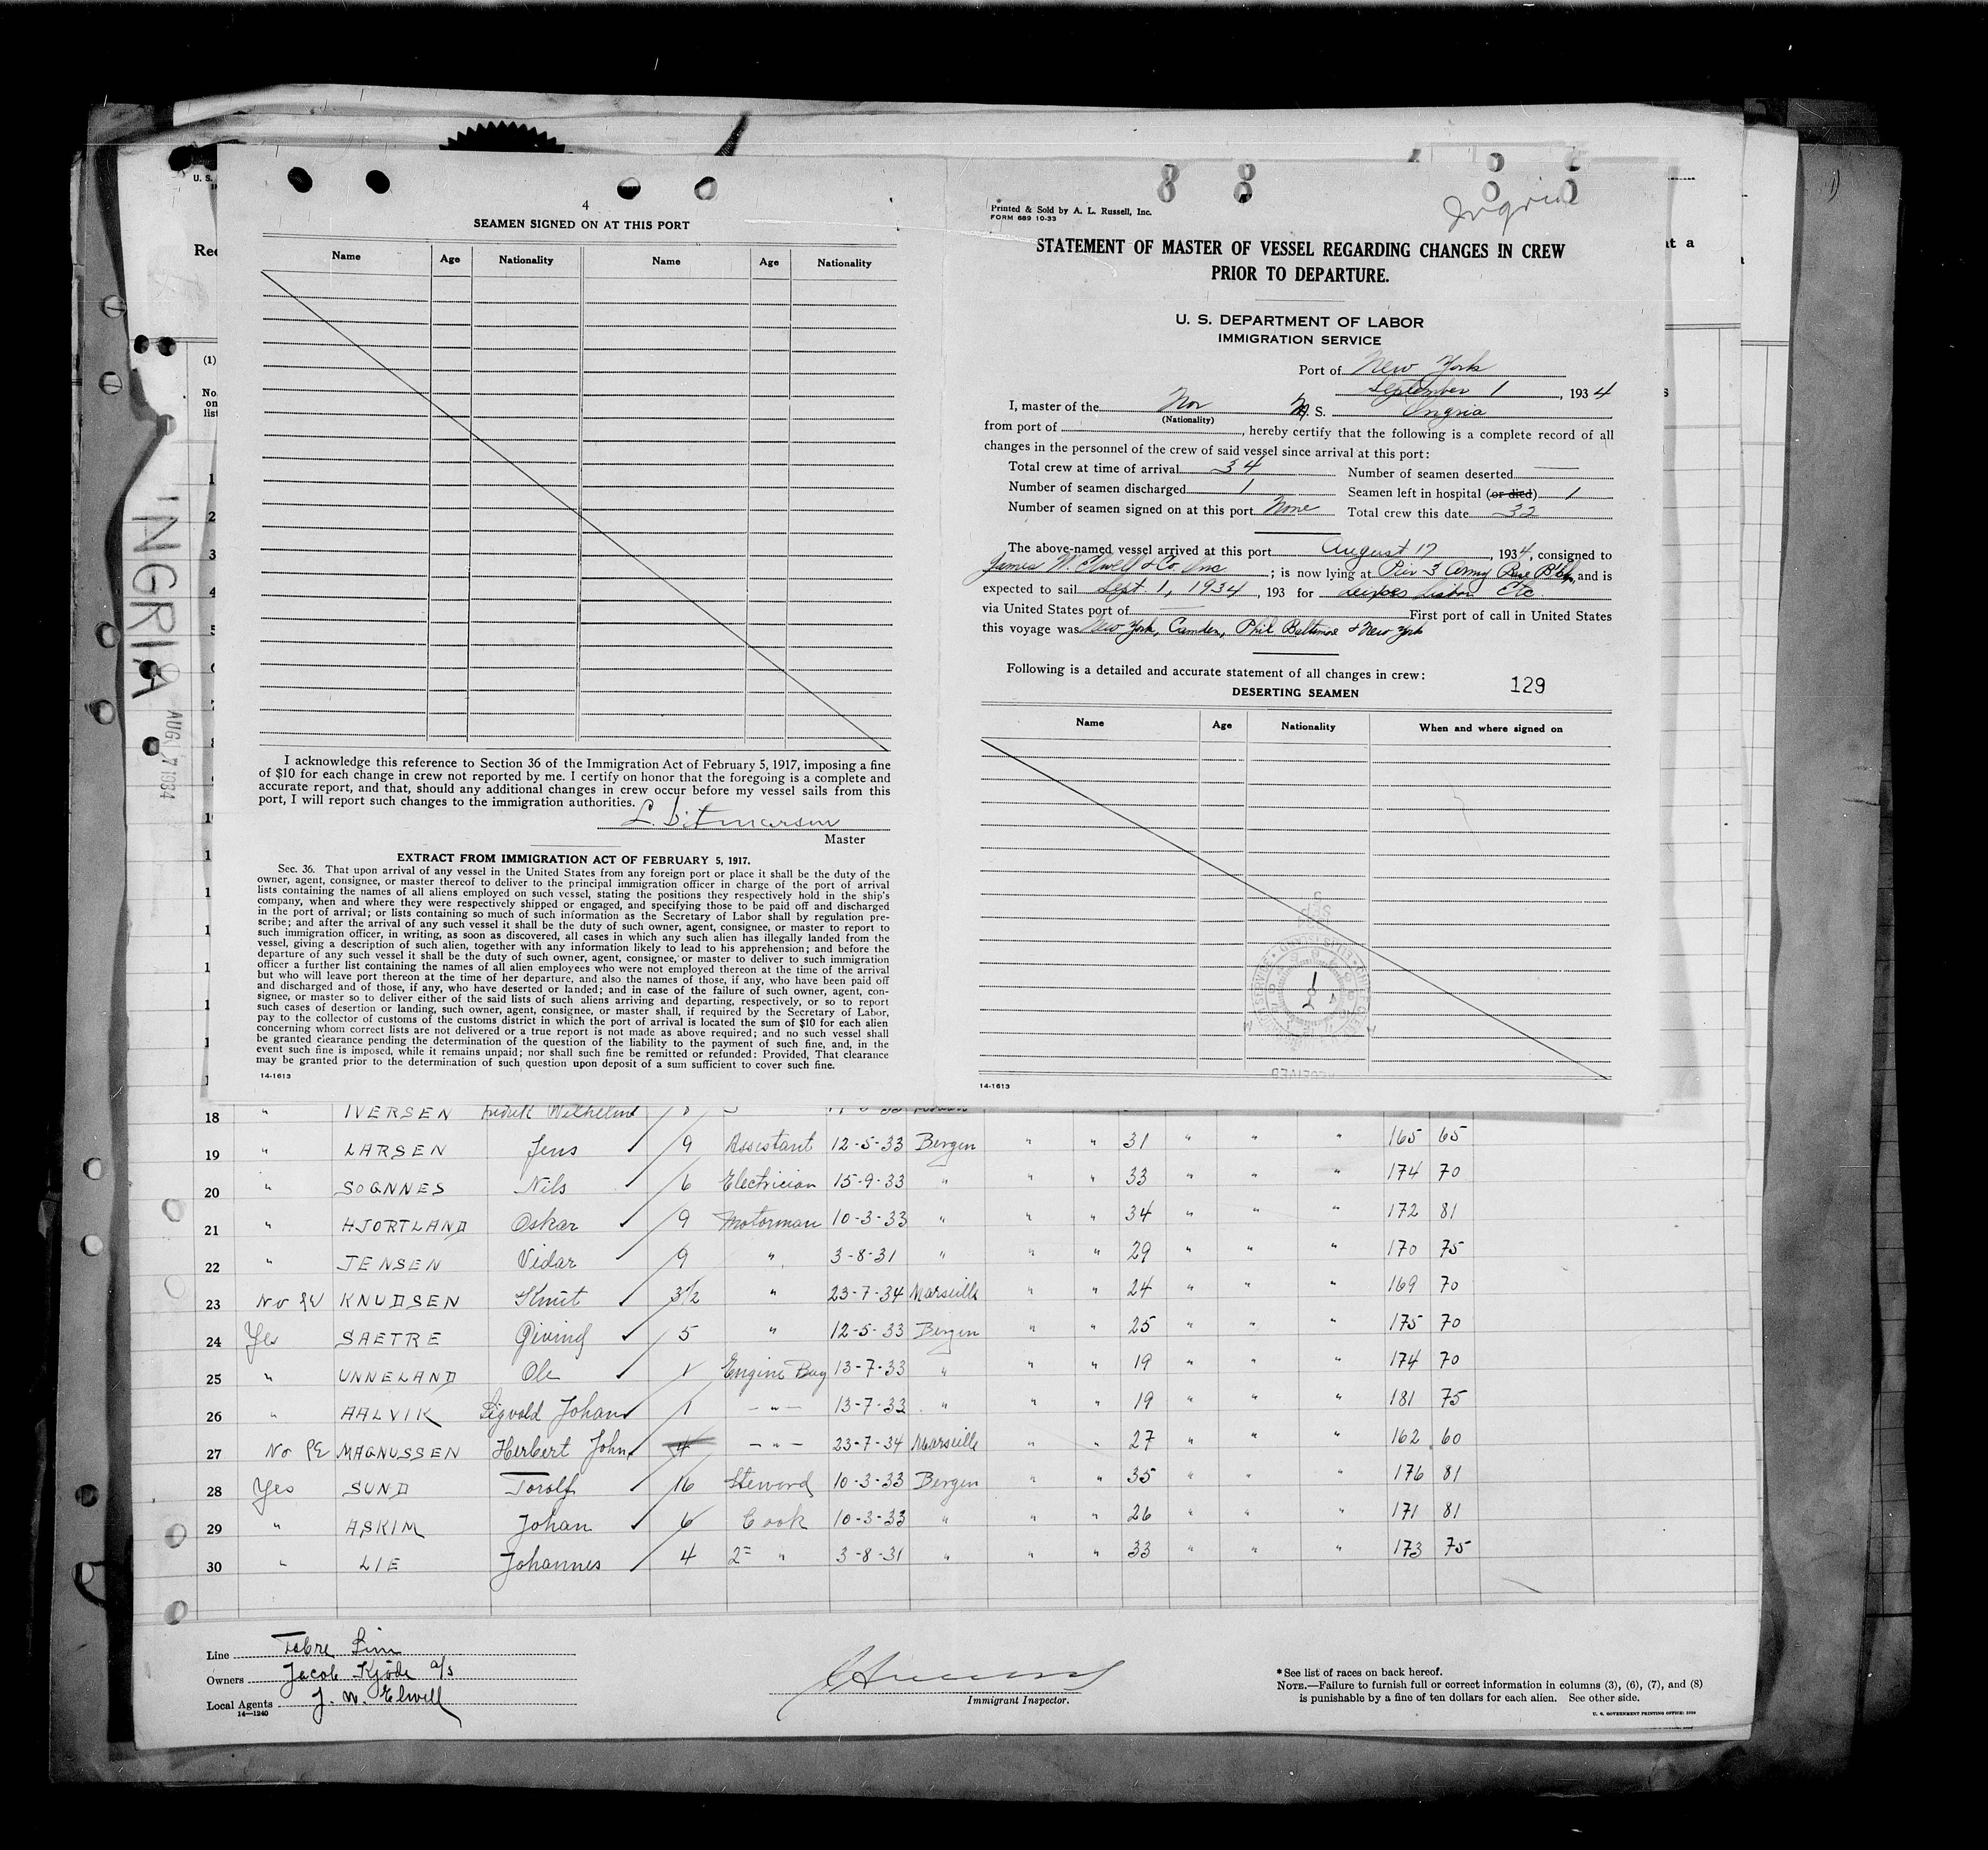 4
SEAMEN SIGNED ON AT THIS PORT
Name Age Nationality Name Age Nationality
I acknowledge this reference to Section 36 of the Immigration Act of February 5, 1917, imposing a fine
of $10 for each change in crew not reported by me. I certify on honor that the foregoing is a complete and
accurate report, and that, should any additional changes in crew occur before my vessel sails from this
port, I will report such changes to the immigration authorities.
L. Ditmarsen
Master
EXTRACT FROM IMMIGRATION ACT OF FEBRUARY 5, 1917.
Sec. 36. That upon arrival of any vessel in the United States from any foreign port or place it shall be the duty of the
owner, agent, consignee, or master thereof to deliver to the principal immigration officer in charge of the port of arrival
lists containing the names of all aliens employed on such vessel, stating the positions they respectively hold in the ship's
company, when and where they were respectively shipped or engaged, and specifying those to be paid off and discharged
in the port of arrival; or lists containing so much of such information as the Secretary of Labor shall by regulation pre-
scribe; and after the arrival of any such vessel it shall be the duty of such owner, agent, consignee, or master to report to
such immigration officer, in writing, as soon as discovered, all cases in which any such alien has illegally landed from the
vessel, giving a description of such alien, together with any information likely to lead to his apprehension; and before the
departure of any such vessel it shall be the duty of such owner, agent, consignee, or master to deliver to such immigration
officer a further list containing the names of all alien employees who were not employed thereon at the time of the arrival
but who will leave port thereon at the time of her departure, and also the names of those, if any, who have been paid off
and discharged and of those, if any, who have deserted or landed; and in case of the failure of such owner, agent, con-
signee, or master so to deliver either of the said lists of such aliens arriving and departing, respectively, or so to report
such cases of desertion or landing, such owner, agent, consignee, or master shall, if required by the Secretary of Labor,
pay to the collector of customs of the customs district in which the port of arrival is located the sum of $10 for each alien
concerning whom correct lists are not delivered or a true report is not made as above required; and no such vessel shall
be granted clearance pending the determination of the question of the liability to the payment of such fine, and, in the
event such fine is imposed, while it remains unpaid; nor shall such fine be remitted or refunded: Provided, That clearance
may be granted prior to the determination of such question upon deposit of a sum sufficient to cover such fine.
14-1613
Ingria
Printed & Sold by A. L. Russell, Inc.
FORM 689 10-33
STATEMENT OF MASTER OF VESSEL REGARDING CHANGES IN CREW
PRIOR TO DEPARTURE.
U. S. DEPARTMENT OF LABOR
IMMIGRATION SERVICE
Port of New York
September 1, 1934
I, master of the Nor M. S. Ingria
(Nationality)
from port of , hereby certify that the following is a complete record of all
changes in the personnel of the crew of said vessel since arrival at this port:
Total crew at time of arrival 34 Number of seamen deserted —
Number of seamen discharged 1 Seamen left in hospital (or died) 1
Number of seamen signed on at this port None Total crew this date 32
The above-named vessel arrived at this port August 17, 1934, consigned to
James W. Elwell & Co. Inc ; is now lying at Pier 3 Army Base B'klyn and is
expected to sail Sept. 1, 1934, 193 for Leixoes Lisbon Etc.
via United States port of — First port of call in United States
this voyage was New York, Camden, Phil Baltimore & New York
Following is a detailed and accurate statement of all changes in crew:
129
DESERTING SEAMEN
Name Age Nationality When and where signed on
14-1613
INGRIA
AUG 17 1934
U. S.
(1)
No.
on
list
18 " IVERSEN Wilhelm
19 " LARSEN Jens 9 Assistant 12-5-33 Bergen " " 31 " " " 165 65
20 " SOGNNES Nils 6 Electrician 15-9-33 " " " 33 " " " 174 70
21 " HJORTLAND Oskar 9 Motorman 10-3-33 " " " 34 " " " 172 81
22 " JENSEN Vidar 9 " 3-8-31 " " " 29 " " " 170 75
23 No KNUDSEN Knut 3½ " 23-7-34 Marseille " " 24 " " " 169 70
24 Yes SAETRE Øivind 5 " 12-5-33 Bergen " " 25 " " " 175 70
25 " UNNELAND Ole 1 Engine Boy 13-7-33 " " " 19 " " " 174 70
26 " AALVIK Sigvald Johan 1 - " - 13-7-33 " " " 19 " " " 181 75
27 No MAGNUSSEN Herbert John 4 - " - 23-7-34 Marseille " " 27 " " " 162 60
28 Yes SUND Torolf 16 Steward 10-3-33 Bergen " " 35 " " " 176 81
29 " ASKIM Johan 6 Cook 10-3-33 " " " 26 " " " 171 81
30 " LIE Johannes 4 2= " 3-8-31 " " " 33 " " " 173 75
Line Fabre Line
Owners Jacob Kjöde a/s
Local Agents J. W. Elwell
14—1240
Immigrant Inspector.
*See list of races on back hereof.
NOTE.—Failure to furnish full or correct information in columns (3), (6), (7), and (8)
is punishable by a fine of ten dollars for each alien. See other side.
U. S. GOVERNMENT PRINTING OFFICE: